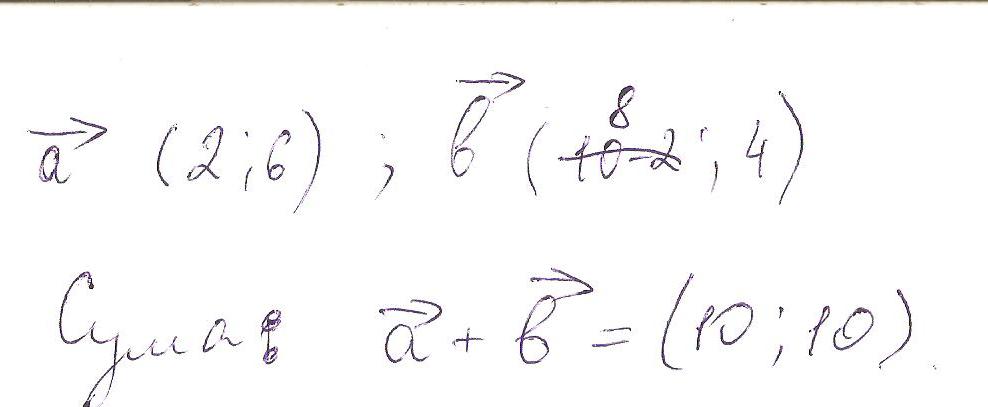 a⃗ (2;6) ; b⃗ (8̶1̶0̶-̶2̶;4)
Сума: a⃗ + b⃗ = (10;10).